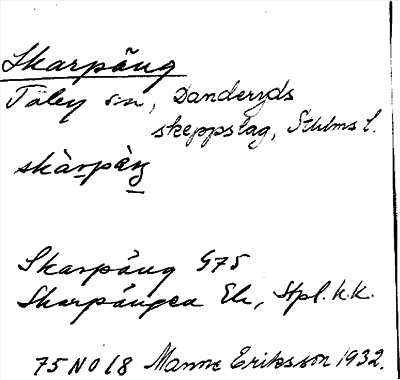 Skarpäng
Täby sn, Danderyds
skeppslag, Sthlms l.
skàrpäŋ
Skarpäng G75
Skarpängen Ek, Stpl. k.k.
75 NO 18 Manne Eriksson 1932.